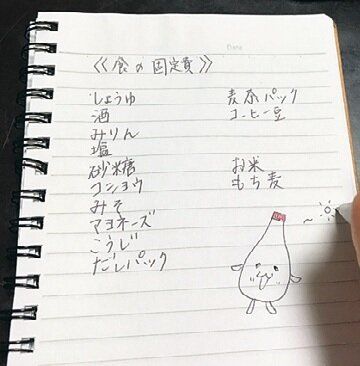 《食の固定費》
しょうゆ
酒
みりん
塩
砂糖
コショウ
みそ
マヨネーズ
こうじ
だしパック
麦茶パック
コーヒー豆
お米
もち麦